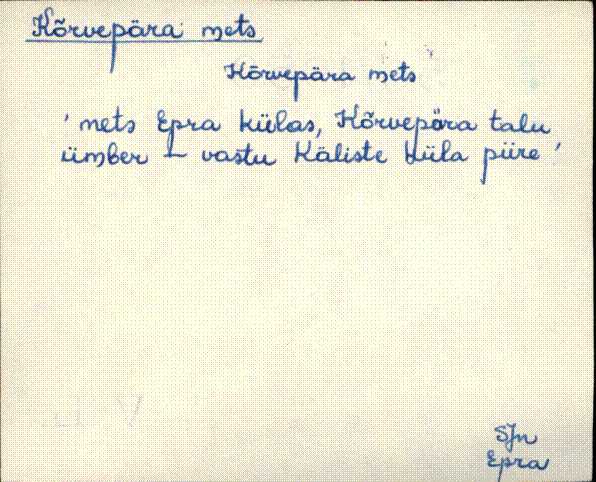 Kõrvepära mets
Kõrvepära mets
'mets Epra külas, Kõrvepära talu
ümber – vastu Käliste küla piire'
SJn
Epra